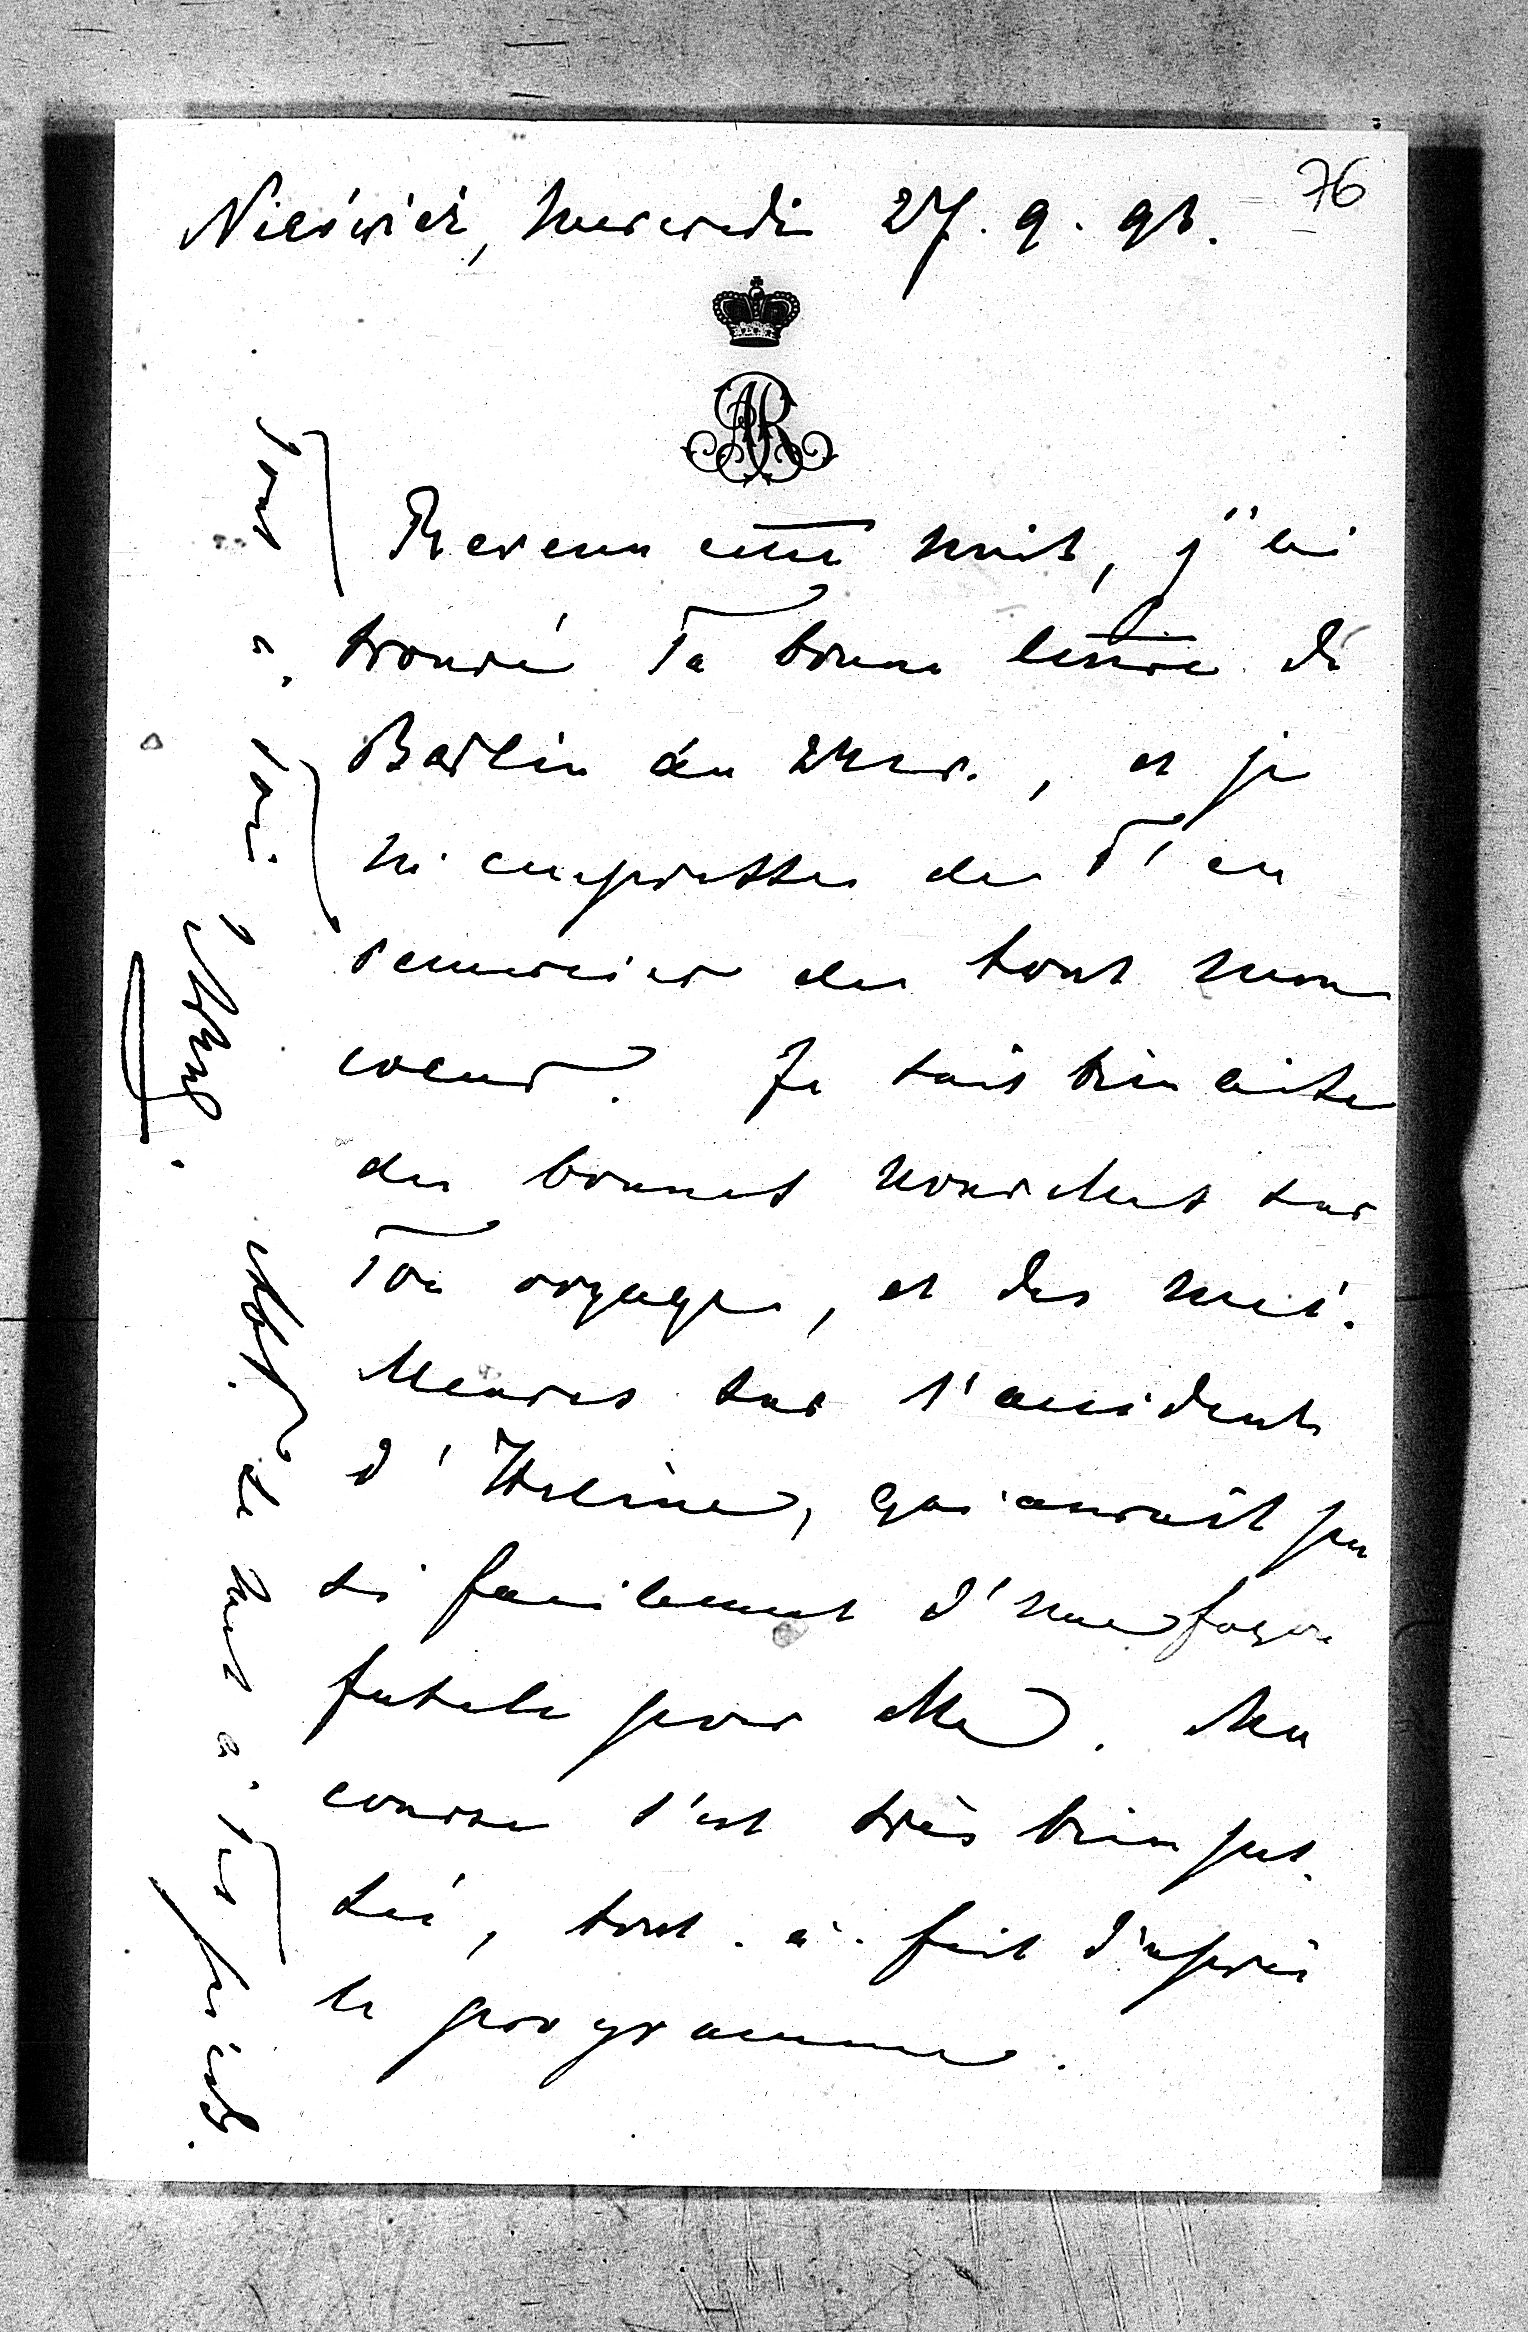 76
Nieśwież, mercredi 27. 9. 93.
AR
Revenu cette nuit, j'ai
trouvé Ta bonne lettre de
Berlin du 24 cr., et je
m'empresse de T'en
remercier de tout mon
coeur. Je suis bien aise
des bonnes nouvelles sur
Ton voyage, et des meil-
leures sur l'accident
d'Hélène, qui aurait pu
si facilement d'une façon
fatale pour elle. Ma
course s'est très bien pas-
sée, tout-à-fait d'après
le programme.
Tout à Toi
de me à Tes pieds.